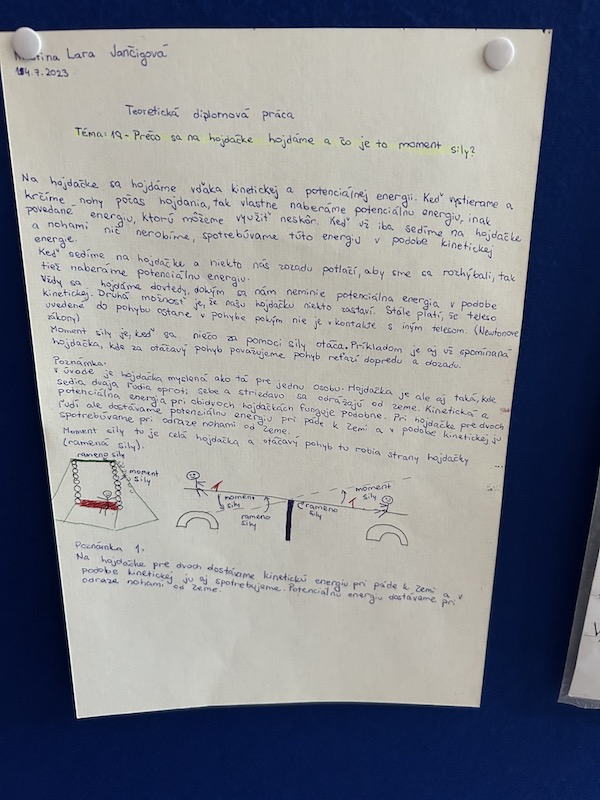 Martina Lara Jančigová
14.7.2023
Teoretická diplomová práca
Téma: 19 - Prečo sa na hojdačke hojdáme a čo je to moment sily?
Na hojdačke sa hojdáme vďaka kinetickej a potenciálnej energii. Keď vystierame a
krčíme nohy počas hojdania, tak vlastne naberáme potenciálnu energiu, inak
povedané energiu, ktorú môžeme využiť neskôr. Keď už iba sedíme na hojdačke
a nohami nič nerobíme, spotrebúvame túto energiu v podobe kinetickej
energie.
Keď sedíme na hojdačke a niekto nás zozadu potlačí, aby sme sa rozhýbali, tak
tiež naberáme potenciálnu energiu.
Vždy sa hojdáme dovtedy, dokým sa nám neminie potenciálna energia v podobe
kinetickej. Druhá možnosť je, že našu hojdačku niekto zastaví. Stále platí, že teleso
uvedené do pohybu ostane v pohybe pokým nie je v kontakte s iným telesom. (Newtonove
zákony)
Moment sily je, keď sa niečo za pomoci sily otáča. Príkladom je aj už spomínaná
hojdačka, kde za otáčavý pohyb považujeme pohyb reťazí dopredu a dozadu.
Poznámka:
V úvode je hojdačka myslená ako tá pre jednu osobu. Hojdačka je ale aj taká, kde
sedia dvaja ľudia oproti sebe a striedavo sa odrážajú od zeme. Kinetická a
potenciálna energia pri obidvoch hojdačkách funguje podobne. Pri hojdačke pre dvoch
ľudí ale dostávame potenciálnu energiu pri páde k zemi a v podobe kinetickej ju
spotrebúvame pri odraze nohami od zeme.
Moment sily tu je celá hojdačka a otáčavý pohyb tu robia strany hojdačky
(ramená sily).
rameno sily
moment
sily
moment
sily
rameno
sily
rameno
sily
moment
sily
Poznámka 1.
Na hojdačke pre dvoch dostávame kinetickú energiu pri páde k zemi a v
podobe kinetickej ju aj spotrebujeme. Potenciálnu energiu dostávame pri
odraze nohami od zeme.